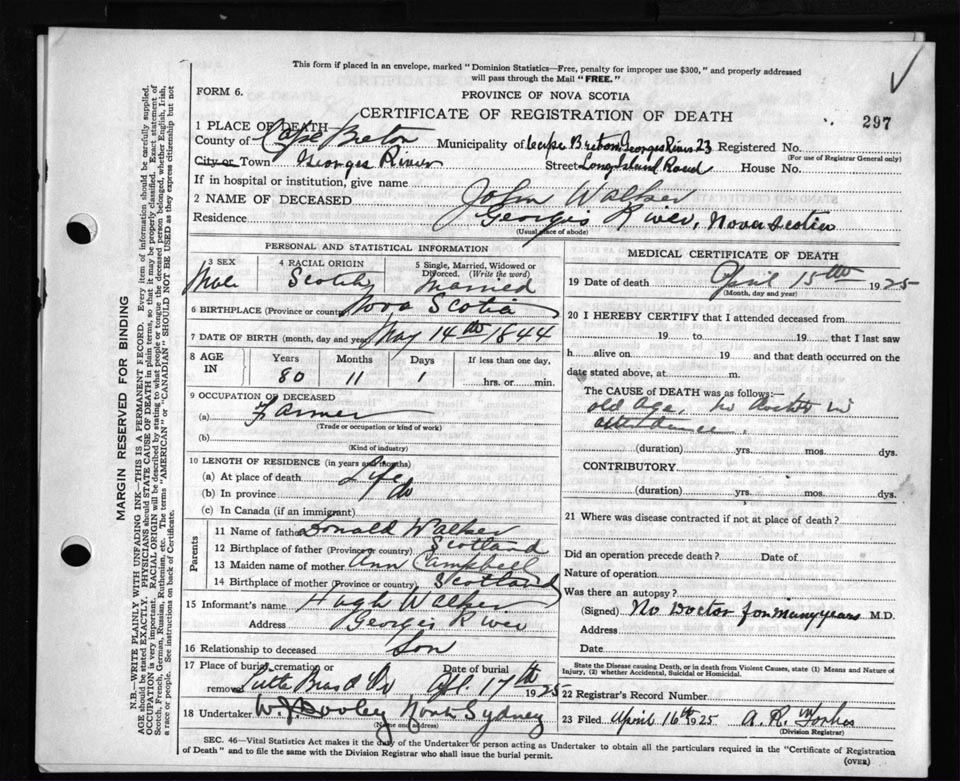 This form if placed in an envelope, marked "Dominion Statistics—Free, penalty for improper use $300," and properly addressed
will pass through the Mail "FREE."
FORM 6.
PROVINCE OF NOVA SCOTIA
CERTIFICATE OF REGISTRATION OF DEATH
297
1 PLACE OF DEATH—
County of Cape Breton Municipality of Cape Breton Georges River 23 Registered No.
(For use of Registrar General only)
City or Town Georges River Street Long Island Road House No.
If in hospital or institution, give name
2 NAME OF DECEASED John Walker
Residence Georges River, Nova Scotia
(Usual place of abode)
PERSONAL AND STATISTICAL INFORMATION
3 SEX 4 RACIAL ORIGIN 5 Single, Married, Widowed or Divorced. (Write the word)
Male Scotch Married
6 BIRTHPLACE (Province or country) Nova Scotia
7 DATE OF BIRTH (month, day and year) May 14th 1844
8 AGE IN Years Months Days If less than one day,
80 11 1 hrs. or min.
9 OCCUPATION OF DECEASED
(a) Farmer
(Trade or occupation or kind of work)
(b)
(Kind of industry)
10 LENGTH OF RESIDENCE (in years and months)
(a) At place of death Life
(b) In province do
(c) In Canada (if an immigrant)
Parents
11 Name of father Donald Walker
12 Birthplace of father (Province or country) Scotland
13 Maiden name of mother Ann Campbell
14 Birthplace of mother (Province or country) Scotland
15 Informant's name Hugh Walker
Address Georges River
16 Relationship to deceased Son
17 Place of burial, cremation or removal Date of burial
Little Bras d'Or Apl. 17th 1925
18 Undertaker Dooley North Sydney
MEDICAL CERTIFICATE OF DEATH
19 Date of death April 15th 1925
(Month, day and year)
20 I HEREBY CERTIFY that I attended deceased from
19 to 19 that I last saw
h alive on 19 and that death occurred on the
date stated above, at m.
The CAUSE OF DEATH was as follows:—
old age, no doctor in
attendance.
(duration) yrs. mos. dys.
CONTRIBUTORY
(duration) yrs. mos. dys.
21 Where was disease contracted if not at place of death?
Did an operation precede death? Date of
Nature of operation
Was there an autopsy?
(Signed) No Doctor for many years M.D.
Address
State the Disease causing Death, or in death from Violent Causes, state (1) Means and Nature of
Injury, (2) whether Accidental, Suicidal or Homicidal.
22 Registrar's Record Number
23 Filed April 16th 1925 A. R. Forbes
(Division Registrar)
SEC. 46—Vital Statistics Act makes it the duty of the Undertaker or person acting as Undertaker to obtain all the particulars required in the "Certificate of Registration
of Death" and to file the same with the Division Registrar who shall issue the burial permit.
(OVER)
MARGIN RESERVED FOR BINDING
N.B.—WRITE PLAINLY WITH UNFADING INK—THIS IS A PERMANENT RECORD. Every item of information should be carefully supplied.
AGE should be stated EXACTLY. PHYSICIANS should STATE CAUSE OF DEATH in plain terms, so that it may be properly classified. Exact statement of
OCCUPATION is very important. RACIAL ORIGIN will be described by stating to what people or tongue the deceased person belonged, whether English, Irish,
Scotch, French, German, Russian, Ruthenian, etc. The terms "AMERICAN" or "CANADIAN" SHOULD NOT BE USED as they express citizenship but not
a race or people. See instructions on back of Certificate.